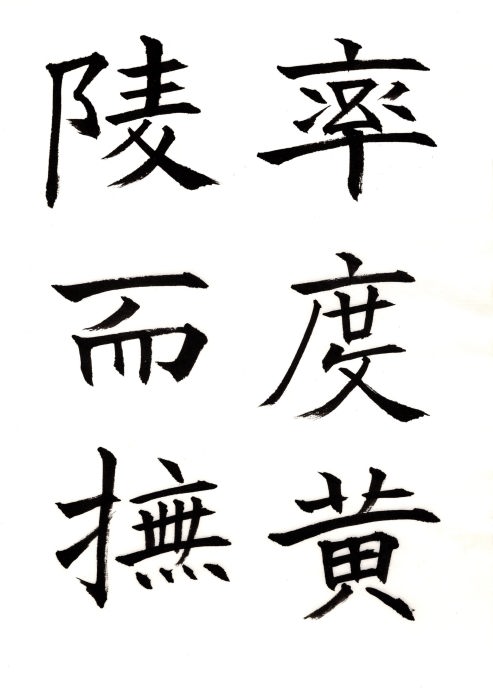 率度黄
陵而撫